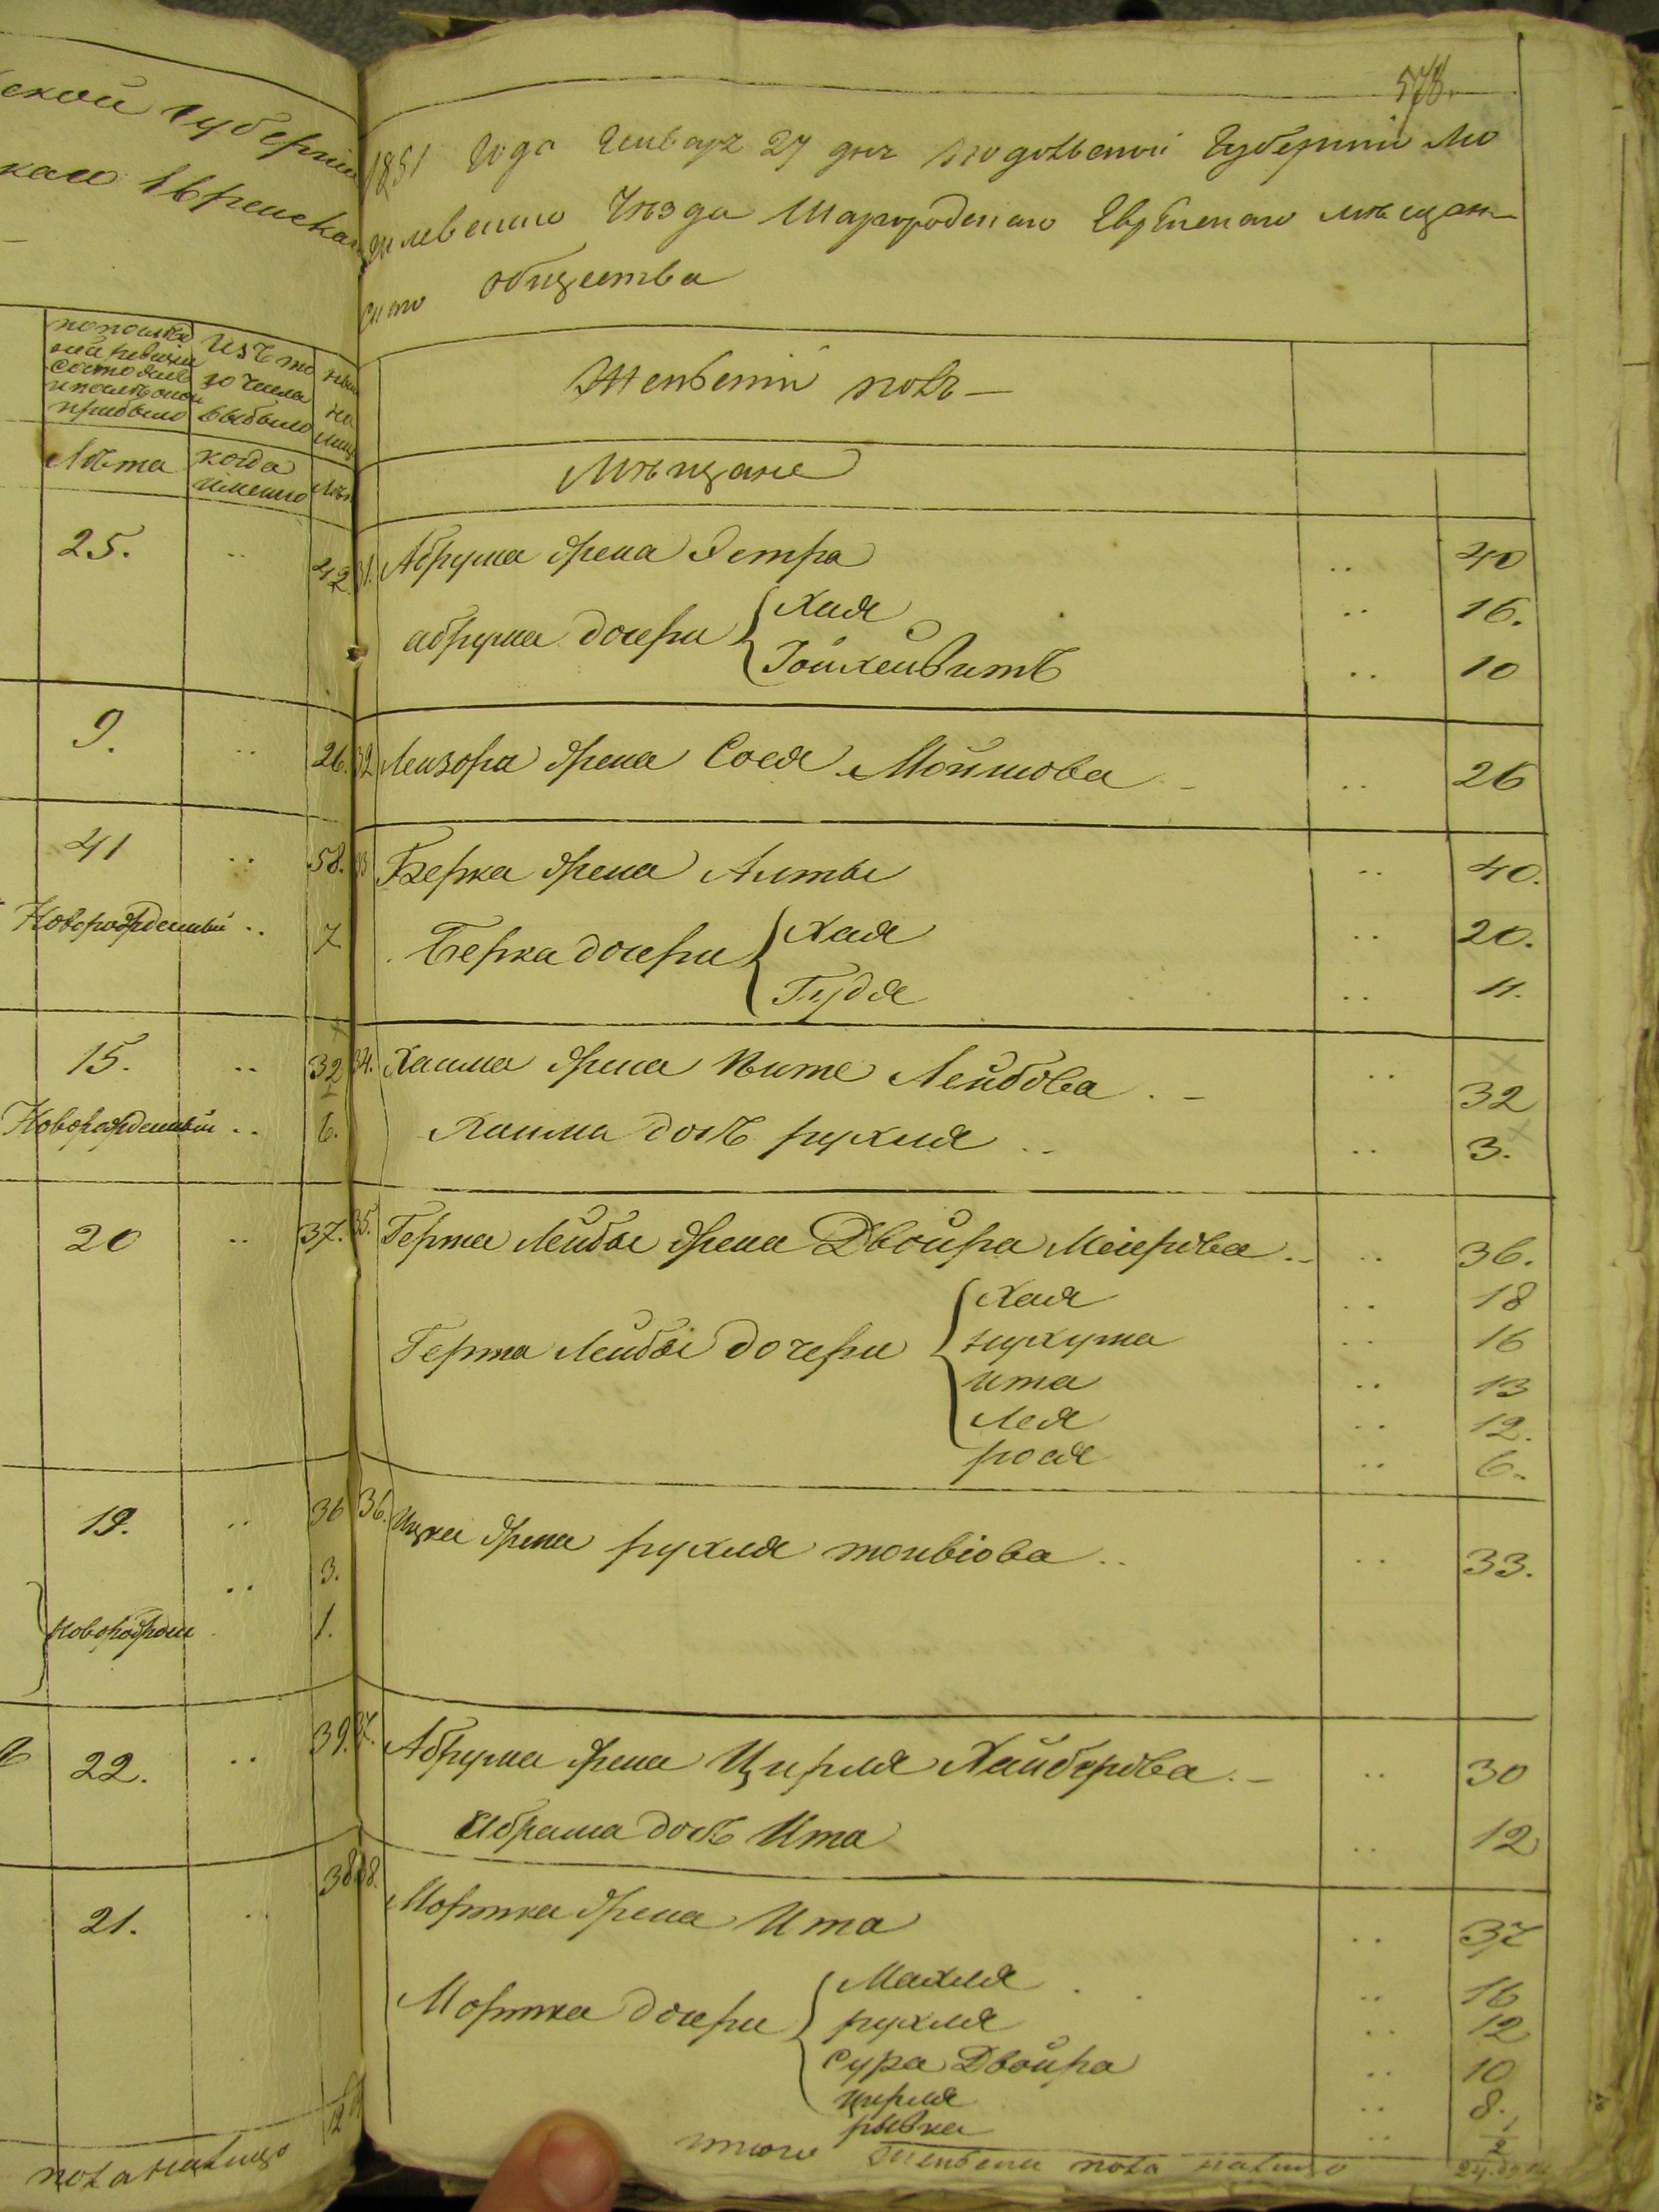 ской Губерніи
каго Евренскаго
по послѣд
ней ревизіи
состояло
и послѣ оной
прибыло
Изъ то
го числа
выбыло
нынѣ
на
лицо
Лѣта
когда
имянно
Лѣта
25. .. 42
9. .. 26.
41 .. 58.
Новорожденный .. 7
15. .. 32
Новорожденный .. 6.
20 .. 37.
19. .. 36
.. 3.
новорожден 1.
22. .. 39.
21. .. 38
12
пола налицо
578.
1851 Года Генваря 27 дня Подольской Губерніи Мо
гилевскаго Уѣзда Шаргородскаго Еврейскаго мѣщан
скаго общества
Женскій полъ —
Мѣщане
31. Абрума жена Эстра .. 40
абрума дочери Хая .. 16.
Гойхенвитъ .. 10
32 Лейзора жена Сося Мошкова .. 26
33 Берка жена Алты .. 40.
Берка дочери Хая .. 20.
Гудя .. 11.
34. Хаима жена Ите Лейбова .. 32
Хаима дочь рухля .. 3.
35. Герша Лейбы жена Двойра Меіерова .. 36.
Герша Лейбы дочери Хая .. 18
нухума .. 16
ита .. 13
Лея .. 12.
рося .. 6.
36. Ицка жена рухля товіова .. 33.
37. Абрума жена Цирля Хайберова .. 30
Абрама дочь Ита .. 12
38. Мортка жена Ита .. 37
Мортка дочери Махля .. 16
рухля .. 12
Сура Двойра .. 10
цирля .. 8.
рывка .. 1/2
итого женска пола налицо